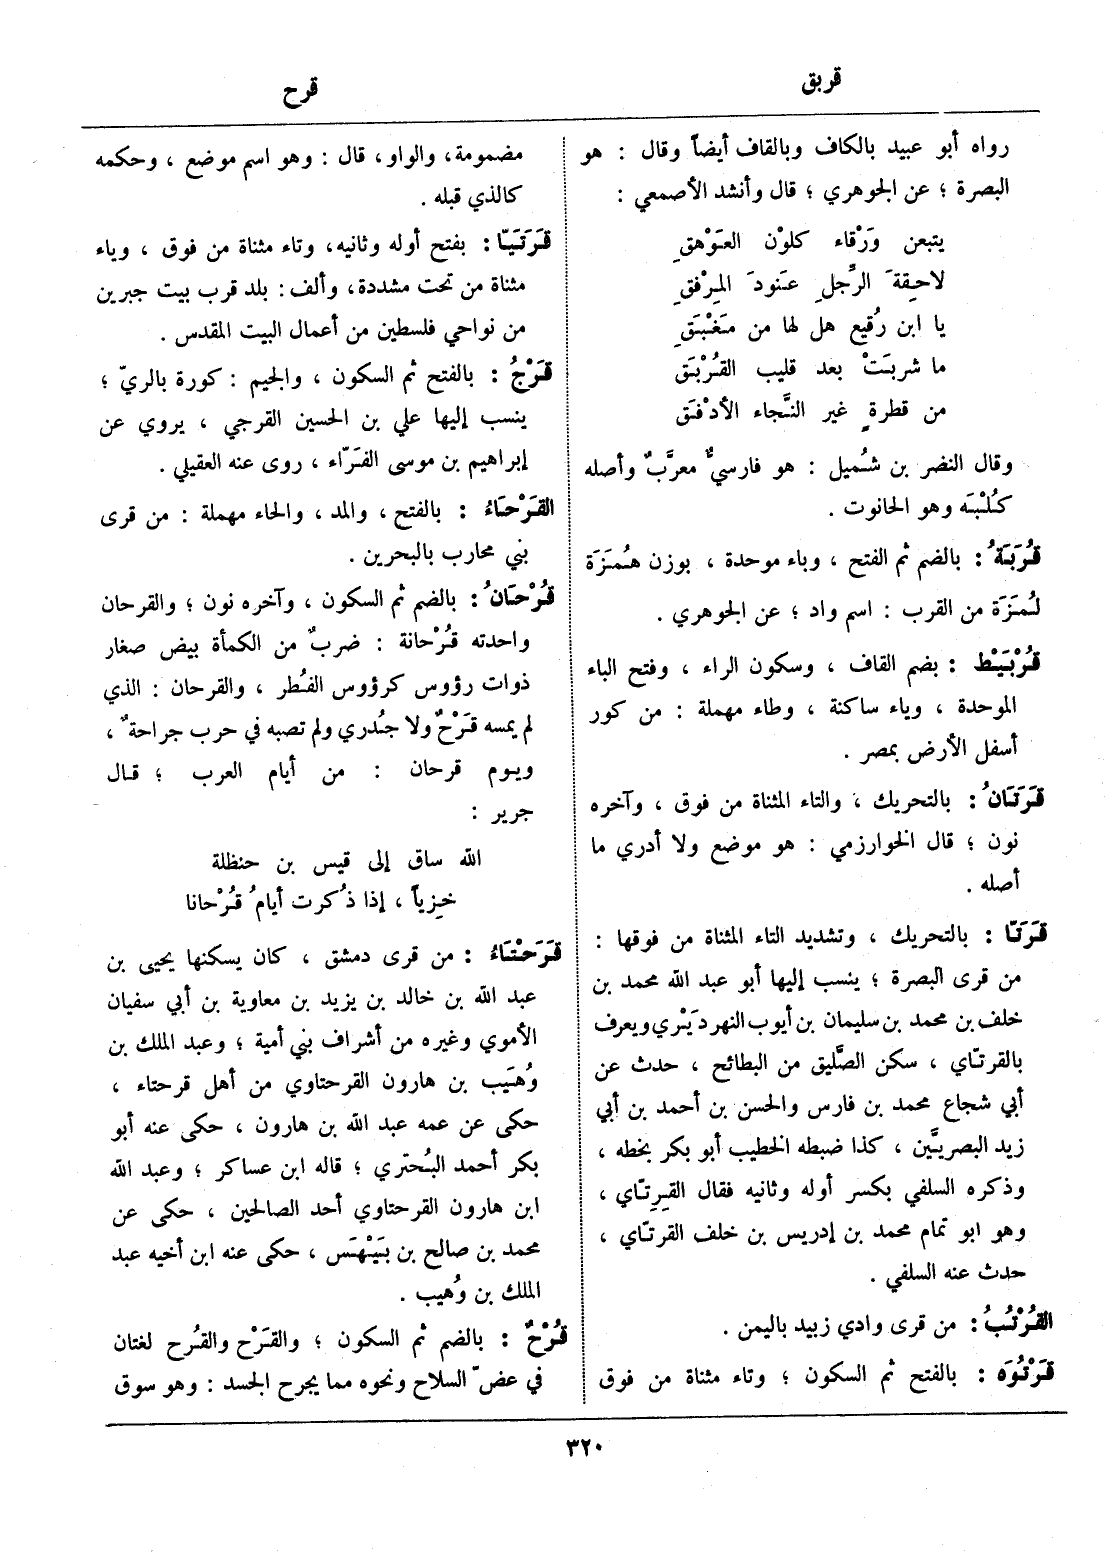 قربق
قرح
رواه أبو عبيد بالكاف وبالقاف أيضاً وقال : هو
البصرة ؛ عن الجوهري ؛ قال وأنشد الأصمعي :
يتبعن وَرْقاء كلَوْن العَوْهقِ
لاحِقةَ الرِّجلِ عنودَ المِرْفقِ
يا ابن رُقيع هل لها من مَغْبَقِ
ما شربَتْ بعد قليب القُرْبَق
من قطرةٍ غير النَّجاء الأدْفَق
وقال النضر بن شُميل : هو فارسيٌّ معرَّبٌ وأصله
كُلْبَه وهو الحانوت .
قُرَبَةُ : بالضم ثم الفتح ، وباء موحدة ، بوزن هُمَزَة
لُمَزَة من القرب : اسم واد ؛ عن الجوهري .
قُرْبَيْط : بضم القاف ، وسكون الراء ، وفتح الباء
الموحدة ، وياء ساكنة ، وطاء مهملة : من كور
أسفل الأرض بمصر .
قَرَتَانُ : بالتحريك ، والتاء المثناة من فوق ، وآخره
نون ؛ قال الخوارزمي : هو موضع ولا أدري ما
أصله .
قَرَتّا : بالتحريك ، وتشديد التاء المثناة من فوقها :
من قرى البصرة ؛ ينسب إليها أبو عبد الله محمد بن
خلف بن محمد بن سليمان بن أيوب النهردَيْري ويعرف
بالقرتّاي ، سكن الصَّليق من البطائح ، حدث عن
أبي شجاع محمد بن فارس والحسن بن أحمد بن أبي
زيد البصريَّين ، كذا ضبطه الخطيب أبو بكر بخطه ،
وذكره السلفي بكسر أوله وثانيه فقال القِرِتّاي ،
وهو ابو تمام محمد بن إدريس بن خلف القرتّاي ،
حدث عنه السلفي .
القُرْتُبُ : من قرى وادي زبيد باليمن .
قَرْتُوَه : بالفتح ثم السكون ؛ وتاء مثناة من فوق
مضمومة ، والواو ، قال : وهو اسم موضع ، وحكمه
كالذي قبله .
قَرَتَيّا : بفتح أوله وثانيه، وتاء مثناة من فوق ، وياء
مثناة من تحت مشددة، وألف: بلد قرب بيت جبرين
من نواحي فلسطين من أعمال البيت المقدس .
قَرْجُ : بالفتح ثم السكون ، والجيم : كورة بالريّ ؛
ينسب إليها علي بن الحسين القرجي ، يروي عن
إبراهيم بن موسى الفَرّاء ، روى عنه العقيلي .
القَرْحَاءُ : بالفتح ، والمد ، والحاء مهملة : من قرى
بني محارب بالبحرين .
قُرْحَانُ : بالضم ثم السكون ، وآخره نون ؛ والقرحان
واحدته قُرْحانة : ضربٌ من الكمأة بيض صغار
ذوات رؤوس كرؤوس الفُطر ، والقرحان : الذي
لم يمسه قَرْحٌ ولا جُدري ولم تصبه في حرب جراحةٌ ،
ويوم قرحان : من أيام العرب ؛ قال
جرير :
الله ساق إلى قيس بن حنظلة
خِزياً ، إذا ذُكرت أيامُ قُرْحانا
قَرَحْتَاءُ : من قرى دمشق ، كان يسكنها يحيى بن
عبد الله بن خالد بن يزيد بن معاوية بن أبي سفيان
الأموي وغيره من أشراف بني أمية ؛ وعبد الملك بن
وُهَيب بن هارون القرحتاوي من أهل قرحتاء ،
حكى عن عمه عبد الله بن هارون ، حكى عنه أبو
بكر أحمد البُحتري ؛ قاله ابن عساكر ؛ وعبد الله
ابن هارون القرحتاوي أحد الصالحين ، حكى عن
محمد بن صالح بن بَيْهَس ، حكى عنه ابن أخيه عبد
الملك بن وُهيب .
قُرْحٌ : بالضم ثم السكون ؛ والقَرْح والقُرح لغتان
في عضّ السلاح ونحوه مما يجرح الجسد : وهو سوق
٣٢٠